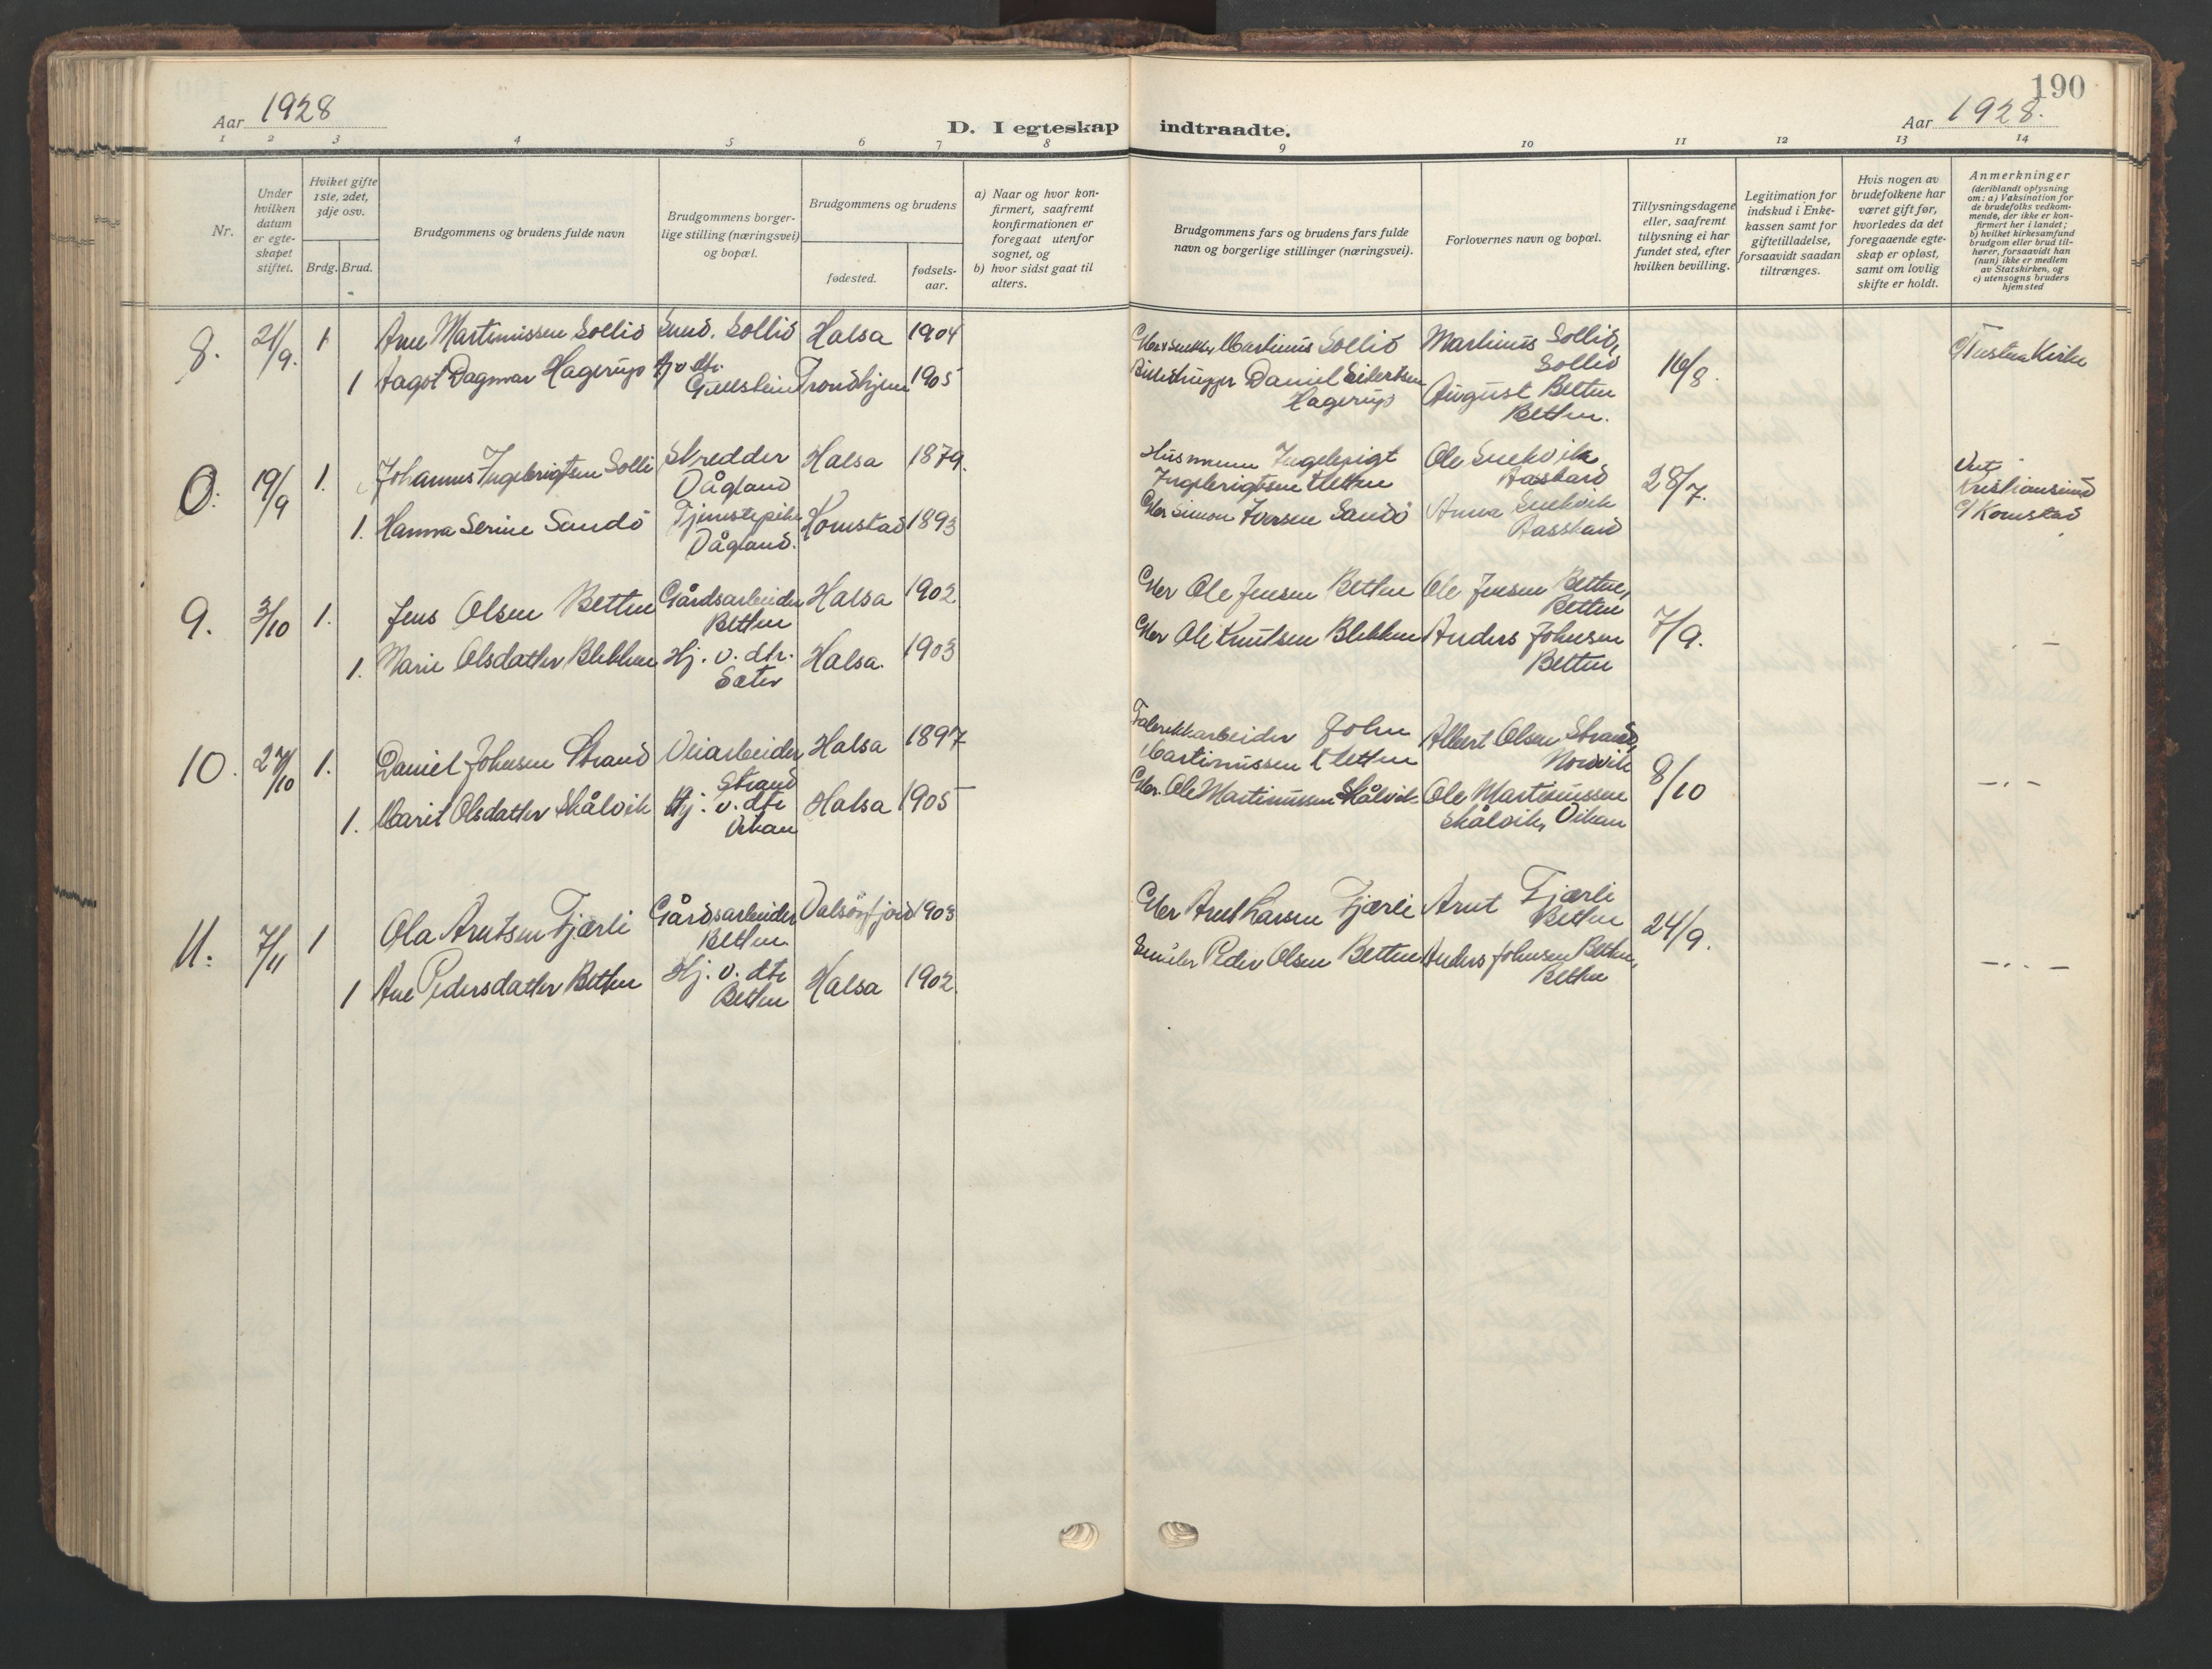 190
Aar 1928
D. I egteskap indtraadte.
Aar 1928.
1 2 3 4 5 6 7 8 9 10 11 12 13 14
Nr.
Under
hvilken
datum
er egte-
skapet
stiftet.
Hvilket gifte
1ste, 2det,
3dje osv.
Brdg. Brud.
Brudgommens og brudens fulde navn
Brudgommens borger-
lige stilling (næringsvei)
og bopæl.
Brudgommens og brudens
fødested.
fødsels-
aar.
a) Naar og hvor kon-
firmert, saafremt
konfirmationen er
foregaat utenfor
sognet, og
b) hvor sidst gaat til
alters.
Brudgommens fars og brudens fars fulde
navn og borgerlige stillinger (næringsvei).
Forlovernes navn og bopæl.
Tillysningsdagene
eller, saafremt
tillysning ei har
fundet sted, efter
hvilken bevilling.
Legitimation for
indskud i Enke-
kassen samt for
giftetilladelse,
forsaavidt saadan
tiltrænges.
Hvis nogen av
brudefolkene har
været gift før,
hvorledes da det
foregaaende egte-
skap er opløst,
samt om lovlig
skifte er holdt.
Anmerkninger
(deriblandt oplysning
om: a) Vaksination for
de brudefolks vedkom-
mende, der ikke er kon-
firmert her i landet;
b) hvilket kirkesamfund
brudgom eller brud til-
hører, forsaavidt han
(hun) ikke er medlem
av Statskirken, og
c) utensogns bruders
hjemsted
8. 21/9. 1 Arne Martinussen Sollid Smed. Sollid Halsa 1904
1 Aagot Dagmar Hagerup Hj v dtr. Trondhjem 1905
Gullstein
Martinus Sollid
Daniel Eilertsen
Hagerup
Martinus Sollid,
Sollid
August Betten
Betten.
16/8.
c/ Tustna Kirke
0: 19/9 1. Johannes Ingebrigtsen Solli Skredder Halsa 1879.
Vågland
1. Hanna Serine Sandö Tjenestepike Kornstad 1893
Vågland.
Husmann Ingebrigt
Ingebrigtsen Kletten
Gbr Simon Iversen Sandö
Ole Snekvik
Aasskard
Anna Snekvik
Aasskard
28/7.
Viet
Kristiansund
c/ Kornstad
9. 3/10 1. Jens Olsen Betten Gårdsarbeider Halsa 1902
Betten
1. Marie Olsdatter Blekken Hj. v. dtr. Halsa. 1903
Sæter
Gbr Ole Jensen Betten
Gbr Ole Knutsen Blekken
Ole Jensen Betten,
Betten
Anders Johnsen
Betten
7/9.
—
10. 27/10 1. Daniel Johnsen Strand Veiarbeider Halsa 1897
Strand
1. Marit Olsdatter Skålvik Hj. v. dtr Halsa 1905
Vikan
Fabrikkarbeider John
Martinussen Kletten
Gbr. Ole Martinussen Skålvik
Albert Olsen Strand,
Nordvik
Ole Martinussen
Skålvik, Vikan
8/10
— . —
11. 7/11 1 Ola Arntsen Fjærli Gårdsarbeider Valsöyfjord 1903
Betten
1 Ane Pedersdatter Betten Hj. v. dtr Halsa 1902.
Betten
Gbr Arnt Larsen Fjærli
Peder Olsen Betten
Arnt Fjærli
Betten
Anders Johnsen Betten,
Betten
24/9.
— . . —